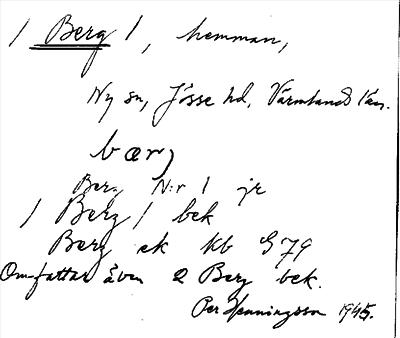 / Berg /, hemman,
Ny sn, Jösse hd, Värmlands län.
bærj
Berg N:r 1 jr
/ Berg / bek
Berg ek kb G 79
Omfattar även 2 Berg bek.
Per Henningsson 1945.